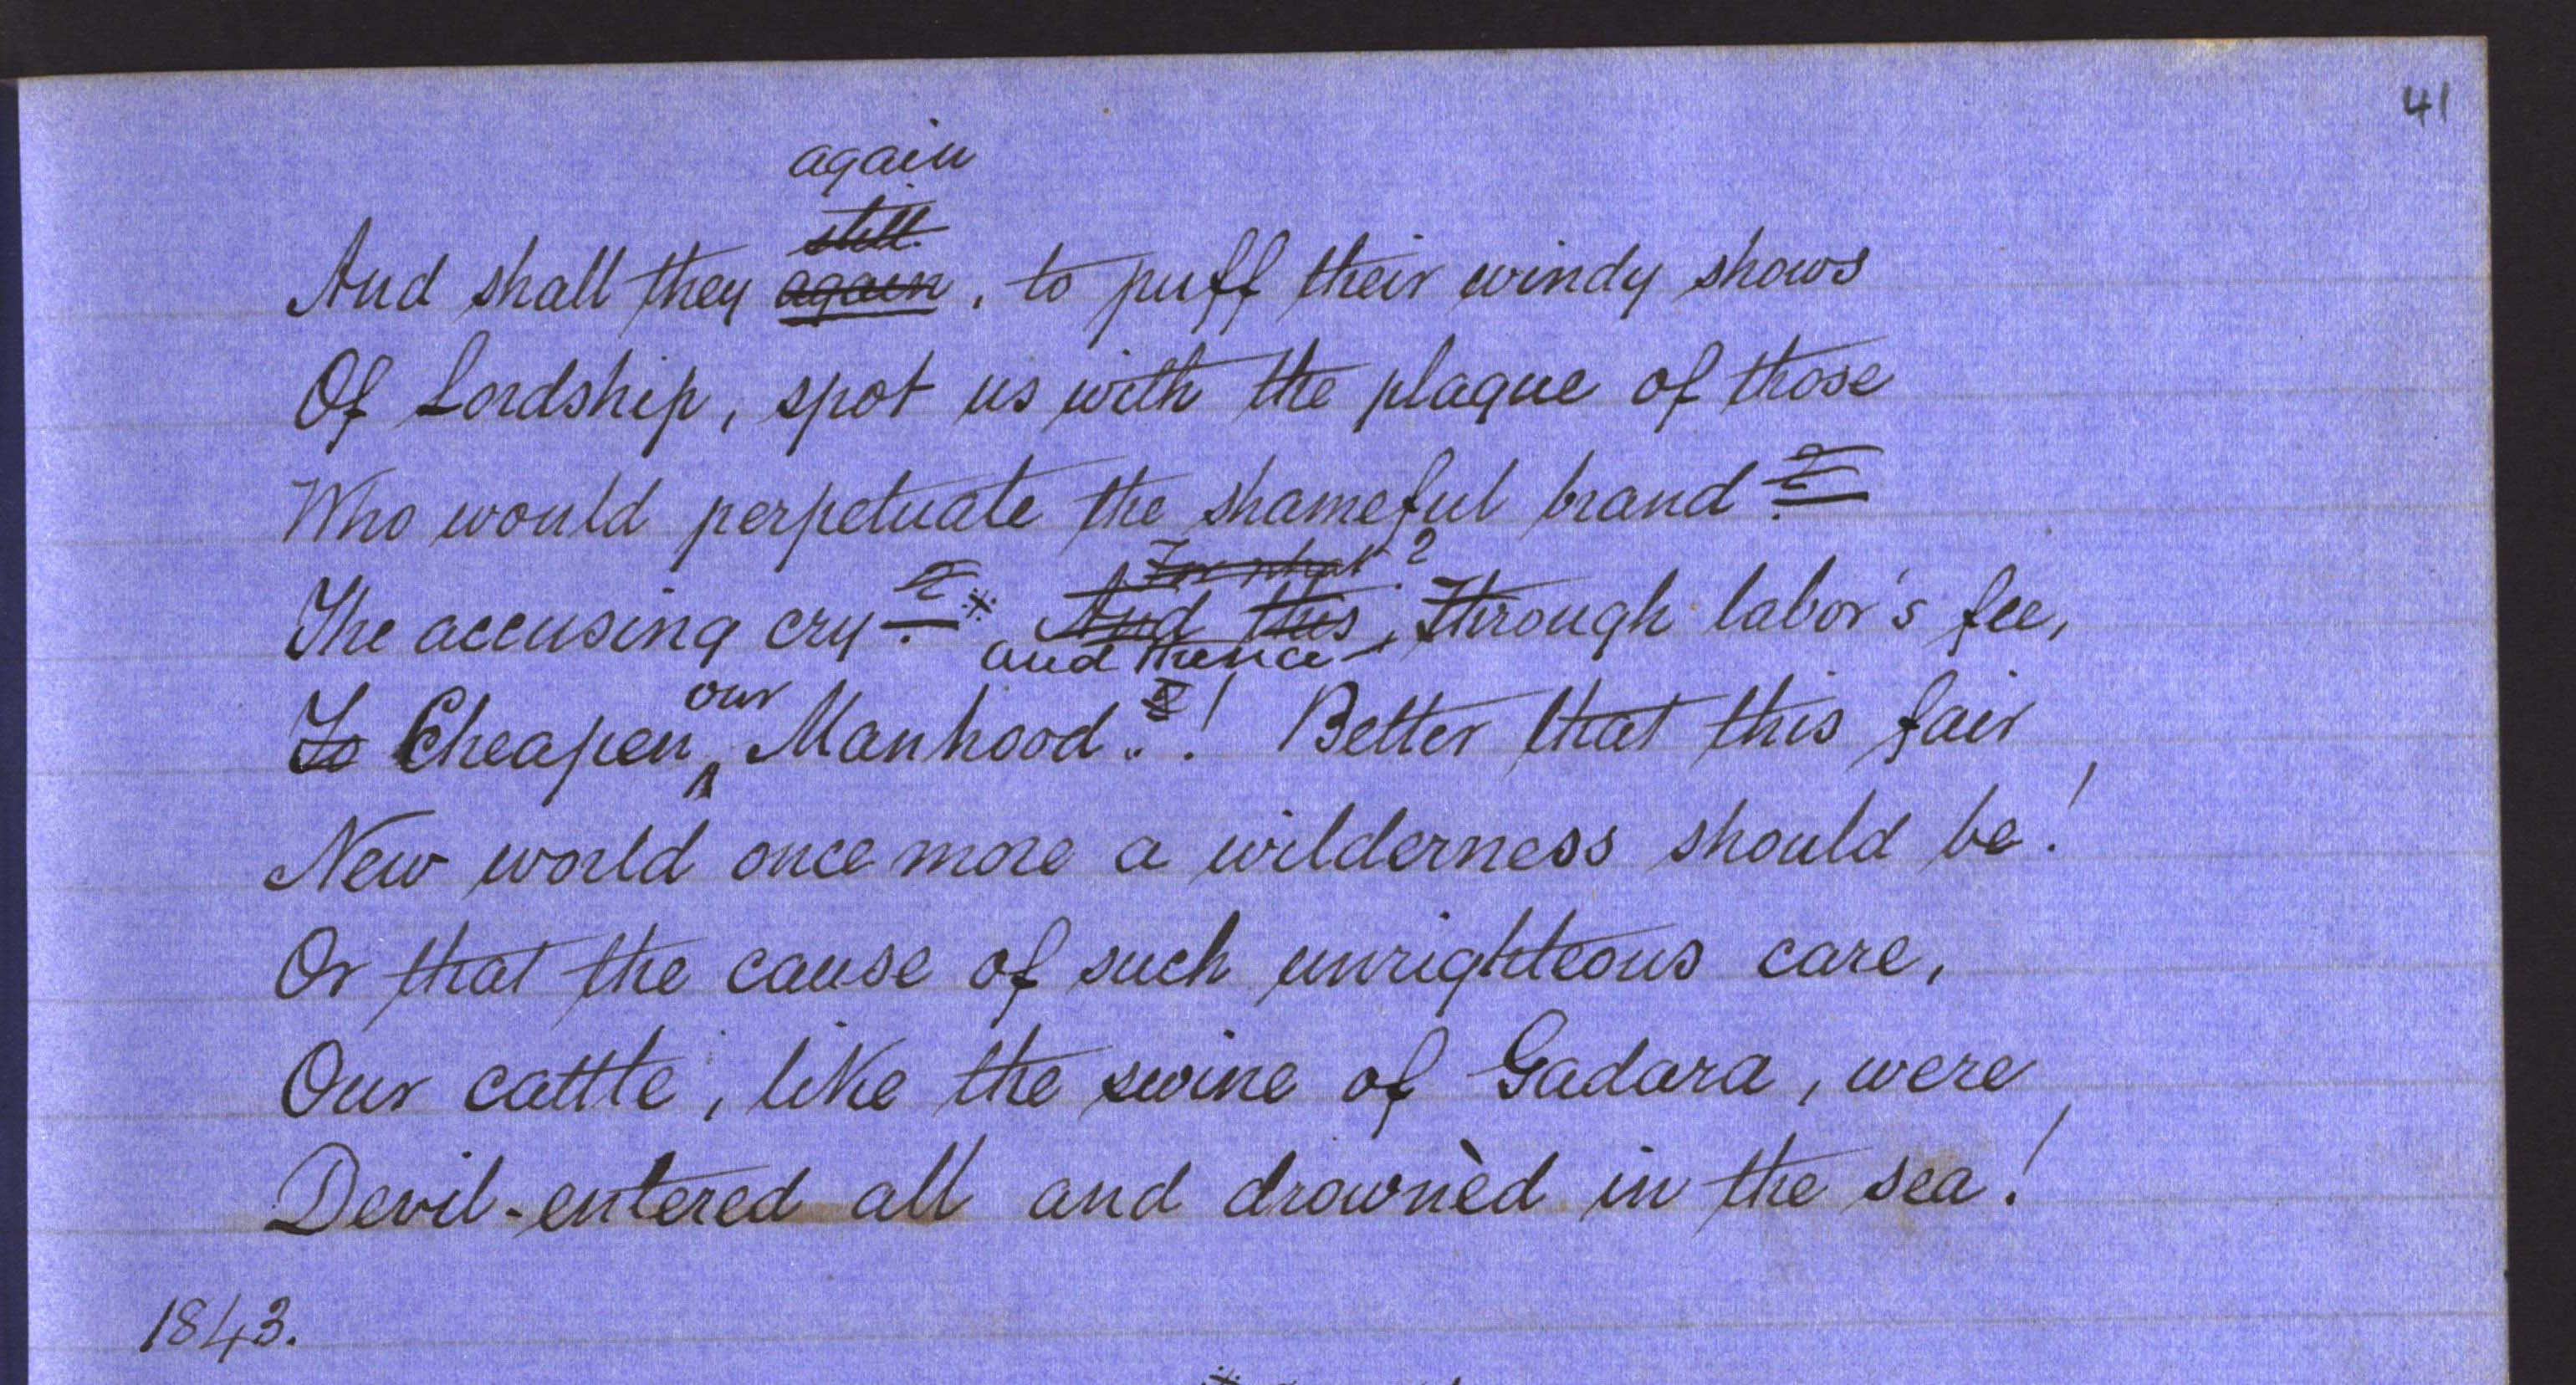 41
again
still
And shall they again, to puff their windy shows
Of Lordship, spot us with the plague of those
Who would perpetuate the shameful brand ?
For what ?
The accusing cry ? And this, Through labor's fee,
and thence
our
To Cheapen Manhood ! Better that this fair
New world once more a wilderness should be!
Or that the cause of such unrighteous care,
Our cattle, like the swine of Gadara, were
Devil-entered all and drownèd in the sea!
1843.